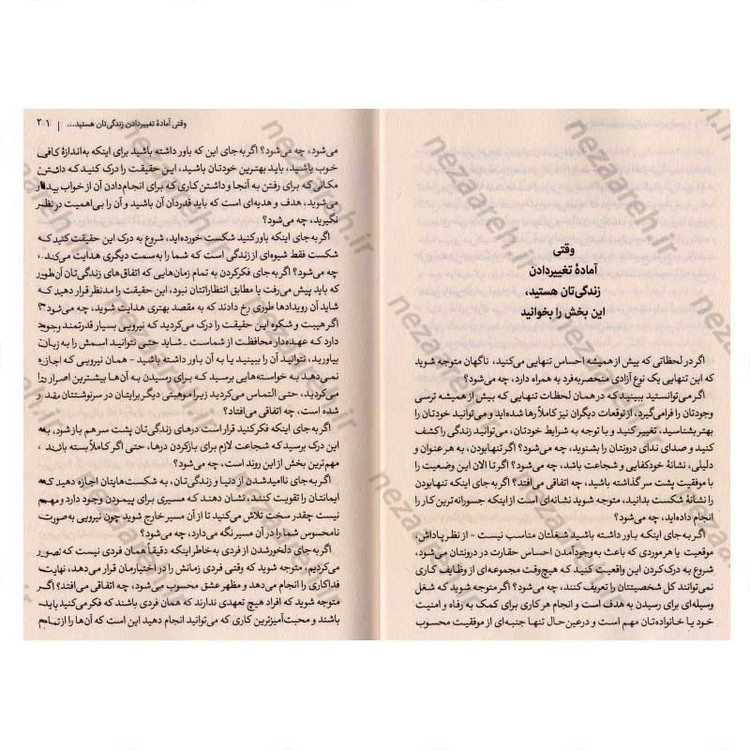 وقتی
آمادهٔ تغییردادن
زندگی‌تان هستید،
این بخش را بخوانید
اگر در لحظاتی که بیش از همیشه احساس تنهایی می‌کنید، ناگهان متوجه شوید
که این تنهایی یک نوع آزادی منحصربه‌فرد به همراه دارد، چه می‌شود؟
اگر می‌توانستید ببینید که در همان لحظات تنهایی که بیش از همیشه ترسی
وجودتان را فرامی‌گیرد، از توقعات دیگران نیز کاملاً رها شده‌اید و می‌توانید خودتان را
بهتر بشناسید، تغییر کنید و با توجه به شرایط خودتان، می‌توانید زندگی را کشف
کنید و صدای ندای درونتان را بشنوید، چه می‌شود؟ اگر تنهابودن، به هر عنوان و
دلیلی، نشانهٔ خودکفایی و شجاعت باشد، چه می‌شود؟ اگر تا الان این وضعیت را
با موفقیت پشت سر گذاشته باشید، چه اتفاقی می‌افتد؟ اگر به‌جای اینکه تنهابودن
را نشانهٔ شکست بدانید، متوجه شوید نشانه‌ای است از اینکه جسورانه‌ترین کار را
انجام داده‌اید، چه می‌شود؟
اگر به‌جای اینکه باور داشته باشید شغلتان مناسب نیست - از نظر پاداش،
موقعیت یا هر موردی که باعث به‌وجودآمدن احساس حقارت در درونتان می‌شود،
شروع به درک‌کردن این واقعیت کنید که هیچ‌وقت مجموعه‌ای از وظایف کاری
نمی‌توانند کل شخصیتتان را تعریف کنند، چه می‌شود؟ اگر متوجه شوید که شغل
وسیله‌ای برای رسیدن به هدف است و انجام هر کاری برای کمک به رفاه و امنیت
خود یا خانواده‌تان مهم است و درعین‌حال تنها جنبه‌ای از موفقیت محسوب
وقتی آمادهٔ تغییردادن زندگی‌تان هستید... | ۲۱
می‌شود، چه می‌شود؟ اگر به‌جای این که باور داشته باشید برای اینکه به‌اندازهٔ کافی
خوب باشید، باید بهترین خودتان باشید، این حقیقت را درک کنید که داشتن
مکانی که برای رفتن به آنجا و داشتن کاری که برای انجام‌دادن آن از خواب بیدار
می‌شوید، هدف و هدیه‌ای است که باید قدردان آن باشید و آن را بی‌اهمیت در نظر
نگیرید، چه می‌شود؟
اگر به‌جای اینکه باور کنید شکست خورده‌اید، شروع به درک این حقیقت کنید که
شکست فقط شیوه‌ای از زندگی است که شما را به‌سمت دیگری هدایت می‌کند،
چه می‌شود؟ اگر به‌جای فکرکردن به تمام زمان‌هایی که اتفاق‌های زندگی‌تان آن‌طور
که باید پیش می‌رفت یا مطابق انتظاراتتان نبود، این حقیقت را مدنظر قرار دهید که
شاید آن رویدادها طوری رخ دادند که به مقصد بهتری هدایت شوید، چه می‌شود؟
اگر هیبت و شکوه این حقیقت را درک می‌کردید که نیرویی بسیار قدرتمند وجود
دارد که عهده‌دار محافظت از شماست ـ شاید حتی نتوانید اسمش را به زبان
بیاورید، نتوانید آن را ببینید یا به آن باور داشته باشید - همان نیرویی که اجازه
نمی‌دهد به خواسته‌هایی برسید که برای رسیدن به آن‌ها بیشترین اصرار را
می‌کردید، حتی التماس می‌کردید زیرا موهبتی دیگر برایتان در سرنوشتتان مقدر
شده است، چه اتفاقی می‌افتاد؟
اگر به‌جای اینکه فکر کنید قرار است درهای زندگی‌تان پشت سر هم باز شود، به
این درک برسید که شجاعت لازم برای بازکردن درها، حتی اگر کاملاً بسته باشند
مهم‌ترین بخش از این روند است، چه می‌شود؟
اگر به‌جای ناامیدشدن از دنیا و زندگی‌تان، به شکست‌هایتان اجازه دهید که
ایمانتان را تقویت کنند، نشان دهند که مسیری برای پیمودن وجود دارد و مهم
نیست چقدر سخت تلاش می‌کنید تا از آن مسیر خارج شوید چون نیرویی به‌صورت
نامحسوس شما را در آن مسیر نگه می‌دارد، چه می‌شود؟
اگر به‌جای دلخورشدن از فردی به‌خاطر اینکه دقیقاً همان فردی نیست که تصور
می‌کردیم، متوجه شوید که وقتی فردی زمانش را در اختیارمان قرار می‌دهد، نهایت
فداکاری را انجام می‌دهد و مظهر عشق محسوب می‌شود، چه اتفاقی می‌افتد؟ اگر
متوجه شوید که افراد هیچ تعهدی ندارند که همان فردی باشند که فکر می‌کنید باید
باشند و محبت‌آمیزترین کاری که می‌توانید انجام دهید این است که آن‌ها را از تمام
nezaareh.ir